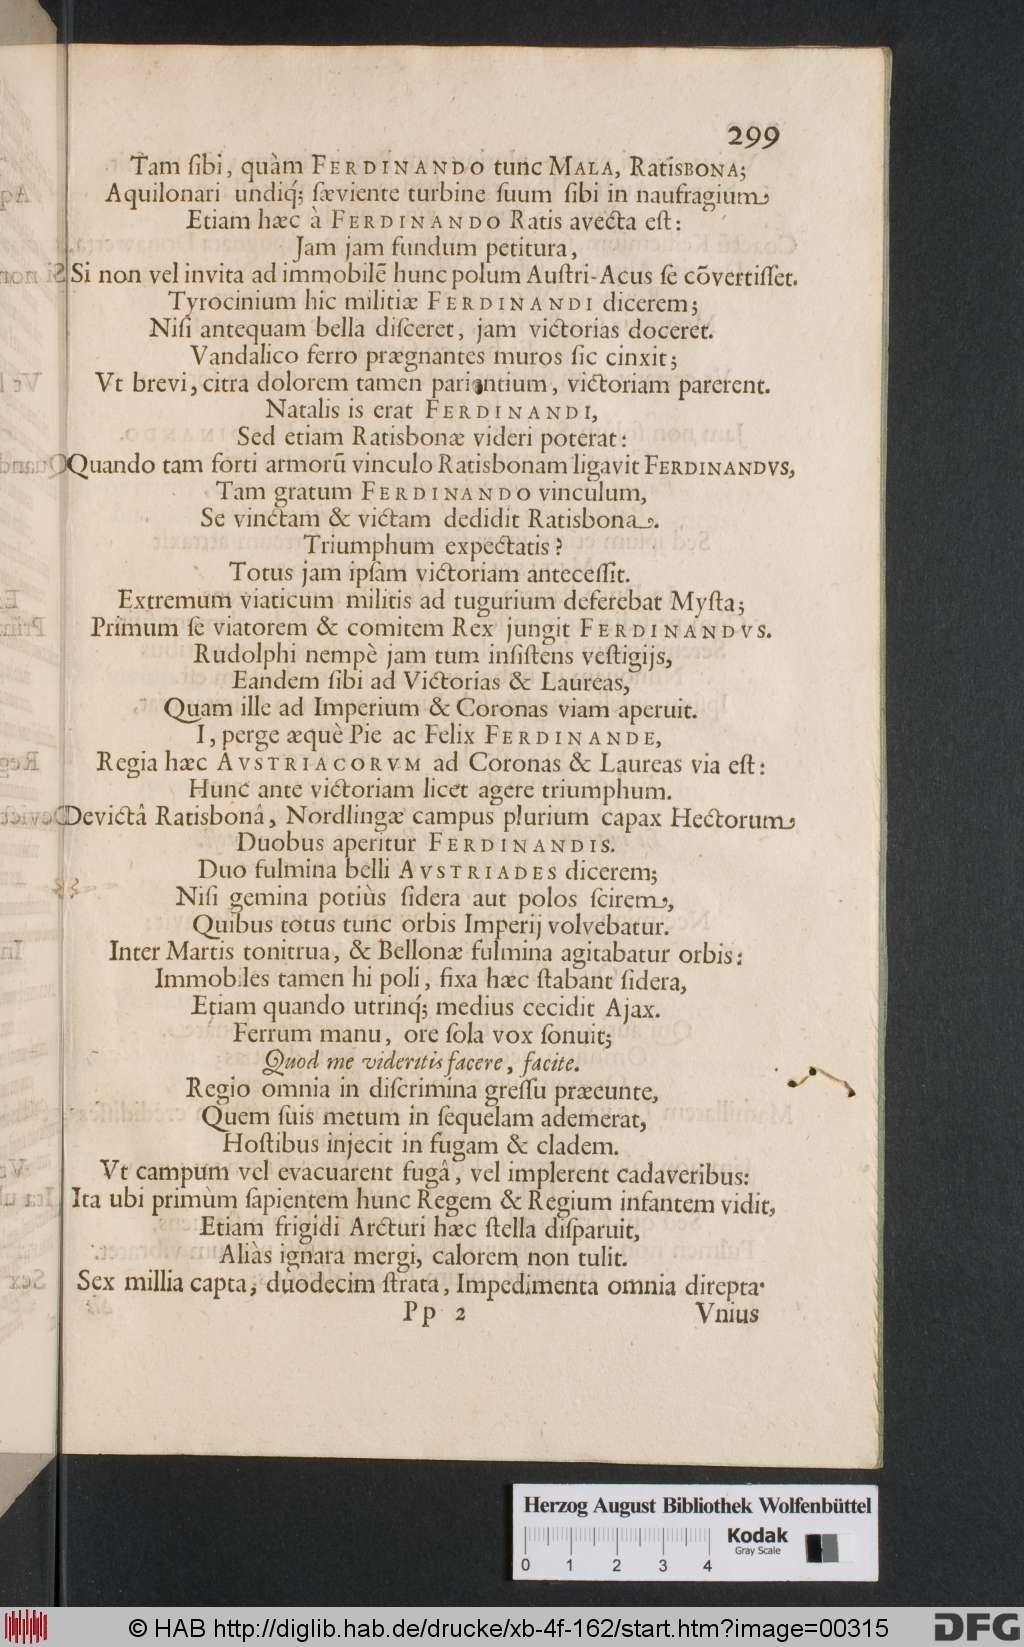 299
Tam ſibi, quàm FERDINANDO tunc MALA, RatisBONA;
Aquilonari undiq́; ſæviente turbine ſuum ſibi in naufragium
Etiam hæc à FERDINANDO Ratis avecta eſt:
Jam jam fundum petitura,
Si non vel invita ad immobilē hunc polum Auſtri-Acus ſe cōvertiſſet.
Tyrocinium hic militiæ FERDINANDI dicerem;
Niſi antequam bella diſceret, jam victorias doceret.
Vandalico ferro prægnantes muros ſic cinxit;
Vt brevi, citra dolorem tamen parientium, victoriam parerent.
Natalis is erat FERDINANDI,
Sed etiam Ratisbonæ videri poterat:
Quando tam forti armorū vinculo Ratisbonam ligavit FERDINANDVS,
Tam gratum FERDINANDO vinculum,
Se vinctam & victam dedidit Ratisbona.
Triumphum expectatis?
Totus jam ipſam victoriam anteceſſit.
Extremum viaticum militis ad tugurium deferebat Myſta;
Primum ſe viatorem & comitem Rex jungit FERDINANDVS.
Rudolphi nempè jam tum inſiſtens veſtigijs,
Eandem ſibi ad Victorias & Laureas,
Quam ille ad Imperium & Coronas viam aperuit.
I, perge æquè Pie ac Felix FERDINANDE,
Regia hæc AVSTRIACORVM ad Coronas & Laureas via eſt:
Hunc ante victoriam licet agere triumphum.
Devictâ Ratisbonâ, Nordlingæ campus plurium capax Hectorum
Duobus aperitur FERDINANDIS.
Duo fulmina belli AVSTRIADES dicerem;
Niſi gemina potiùs ſidera aut polos ſcirem,
Quibus totus tunc orbis Imperij volvebatur.
Inter Martis tonitrua, & Bellonæ fulmina agitabatur orbis:
Immobiles tamen hi poli, fixa hæc ſtabant ſidera,
Etiam quando utrinq́; medius cecidit Ajax.
Ferrum manu, ore ſola vox ſonuit;
Quod me videritis facere, facite.
Regio omnia in diſcrimina greſſu præeunte,
Quem ſuis metum in ſequelam ademerat,
Hoſtibus injecit in fugam & cladem.
Vt campum vel evacuarent fugâ, vel implerent cadaveribus:
Ita ubi primùm ſapientem hunc Regem & Regium infantem vidit,
Etiam frigidi Arcturi hæc ſtella diſparuit,
Aliàs ignara mergi, calorem non tulit.
Sex millia capta, duodecim ſtrata, Impedimenta omnia direpta.
Pp 2 Vnius
Herzog August Bibliothek Wolfenbüttel
Kodak
Gray Scale
0 1 2 3 4
© HAB http://diglib.hab.de/drucke/xb-4f-162/start.htm?image=00315
DFG